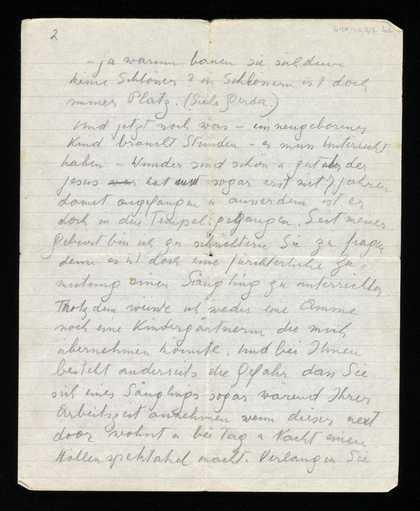 2
– ja warum bauen sie sich denn
keine Schlösser? in Schlössern ist doch
immer Platz. (siehe Gerda)
Und jetzt noch was – ein neugeborenes
Kind braucht Stunden – es muss Unterricht
haben – Wunder sind schön u gut aber der
Jesus hat sogar erst mit 7 Jahren
damit angefangen u ausserdem ist er
doch in den Tempel gegangen. Seit meiner
Geburt bin ich zu schüchtern Sie zu fragen
denn es ist doch eine fürchterliche Zu-
mutung einen Säugling zu unterrichten
Trotzdem wüsste ich weder eine Amme
noch eine Kindergärtnerin die mich
übernehmen könnte. Und bei Ihnen
besteht anderseits die Gefahr dass Sie
sich eines Säuglings sogar wärend Ihrer
Arbeitszeit annehmen wenn dieser next
door wohnt u bei Tag u Nacht einen
Höllenspektakel macht. Verlangen Sie